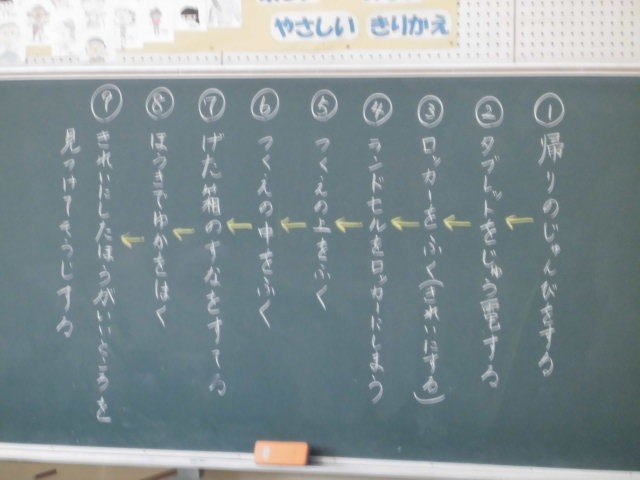 やさしい きりかえ
① 帰りのじゅんびをする
② タブレットをじゅう電する
③ ロッカーをふく(きれいにする)
④ ランドセルをロッカーにしまう
⑤ つくえの上をふく
⑥ つくえの中をふく
⑦ げた箱のすなをすてる
⑧ ほうきでゆかをはく
⑨ きれいにしたほうがいいところを
見つけてそうじする